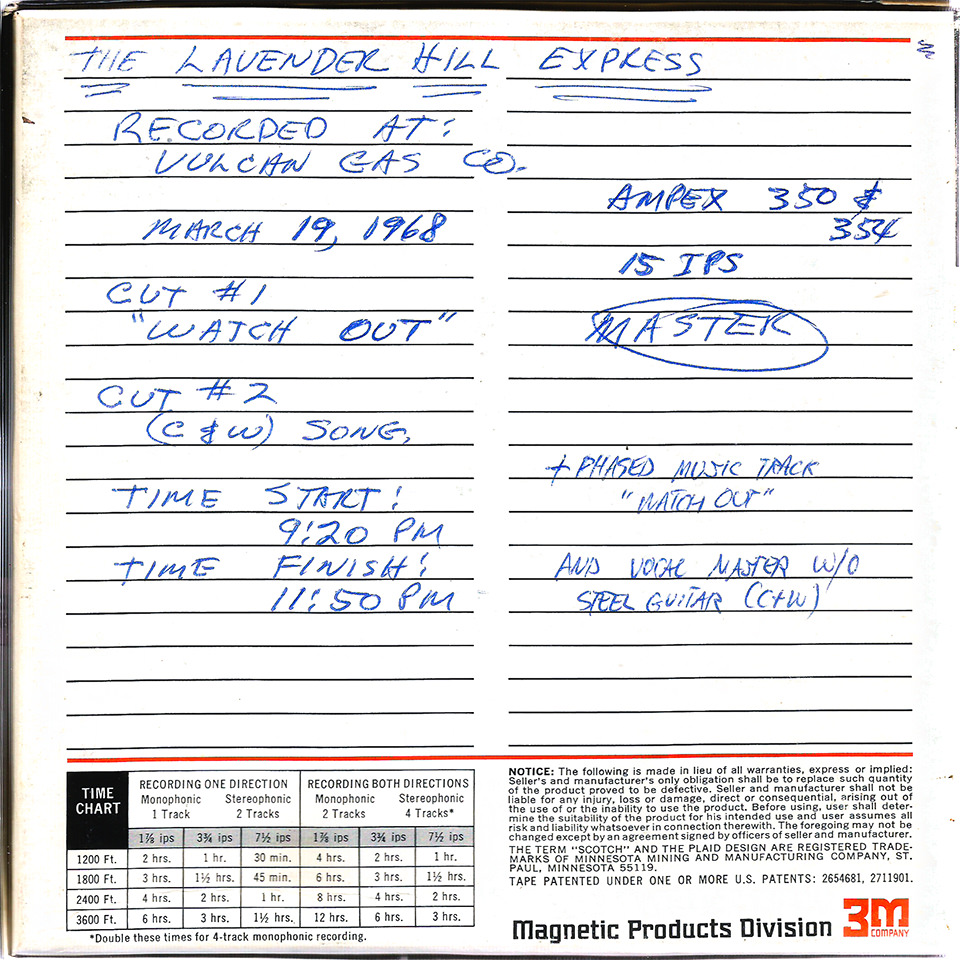 THE LAVENDER HILL EXPRESS
RECORDED AT:
VULCAN GAS CO.
MARCH 19, 1968
CUT #1
"WATCH OUT"
CUT #2
(C & W) SONG.
TIME START:
9:20 PM
TIME FINISH:
11:50 PM
AMPEX 350 &
354
15 IPS
MASTER
+ PHASED MUSIC TRACK
"WATCH OUT"
AND VOCAL MASTER W/O
STEEL GUITAR (C+W)
TIME CHART
RECORDING ONE DIRECTION RECORDING BOTH DIRECTIONS
Monophonic Stereophonic Monophonic Stereophonic
1 Track 2 Tracks 2 Tracks 4 Tracks*
1⅞ ips 3¾ ips 7½ ips 1⅞ ips 3¾ ips 7½ ips
1200 Ft. 2 hrs. 1 hr. 30 min. 4 hrs. 2 hrs. 1 hr.
1800 Ft. 3 hrs. 1½ hrs. 45 min. 6 hrs. 3 hrs. 1½ hrs.
2400 Ft. 4 hrs. 2 hrs. 1 hr. 8 hrs. 4 hrs. 2 hrs.
3600 Ft. 6 hrs. 3 hrs. 1½ hrs. 12 hrs. 6 hrs. 3 hrs.
*Double these times for 4-track monophonic recording.
NOTICE: The following is made in lieu of all warranties, express or implied:
Seller's and manufacturer's only obligation shall be to replace such quantity
of the product proved to be defective. Seller and manufacturer shall not be
liable for any injury, loss or damage, direct or consequential, arising out of
the use of or the inability to use the product. Before using, user shall deter-
mine the suitability of the product for his intended use and user assumes all
risk and liability whatsoever in connection therewith. The foregoing may not be
changed except by an agreement signed by officers of seller and manufacturer.
THE TERM "SCOTCH" AND THE PLAID DESIGN ARE REGISTERED TRADE-
MARKS OF MINNESOTA MINING AND MANUFACTURING COMPANY, ST.
PAUL, MINNESOTA 55119.
TAPE PATENTED UNDER ONE OR MORE U.S. PATENTS: 2654681, 2711901.
Magnetic Products Division 3M
COMPANY